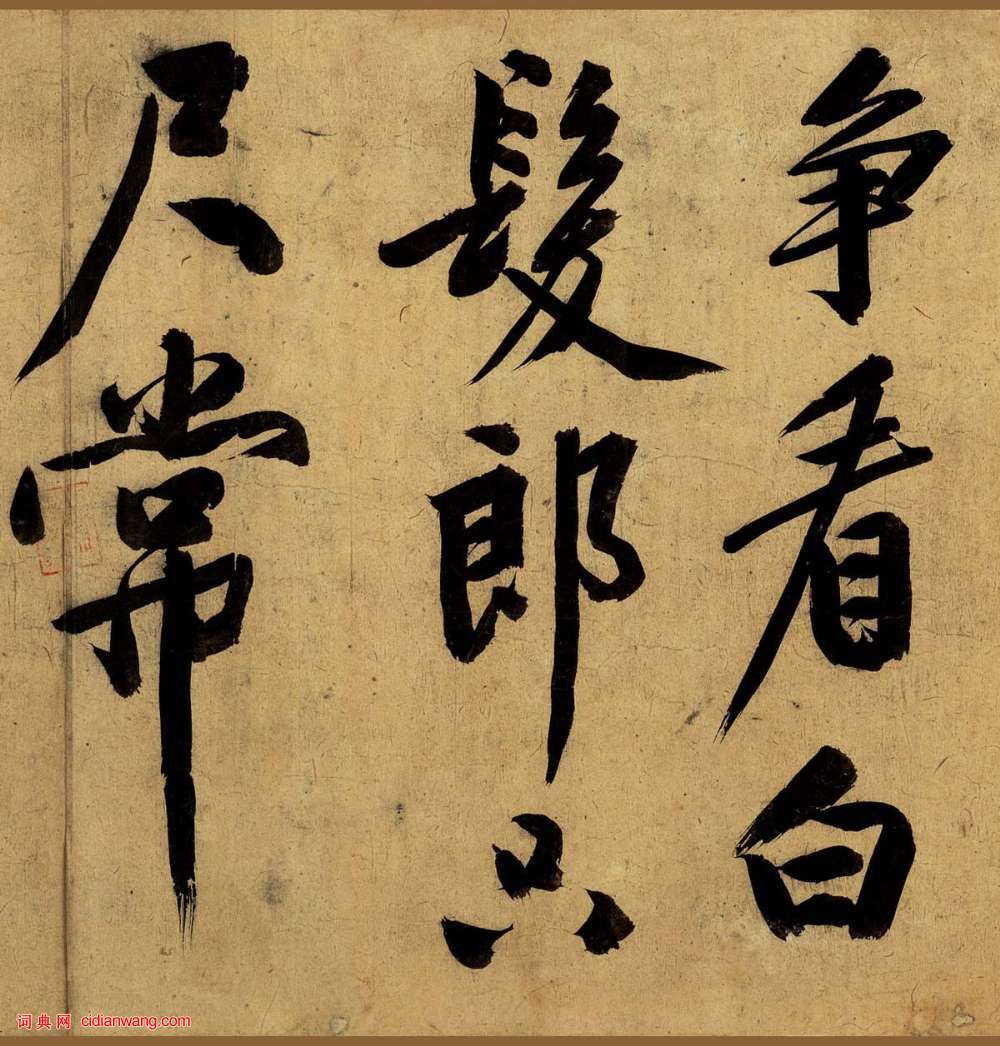 争看白
髮郎只
尺常
词典网 cidianwang.com